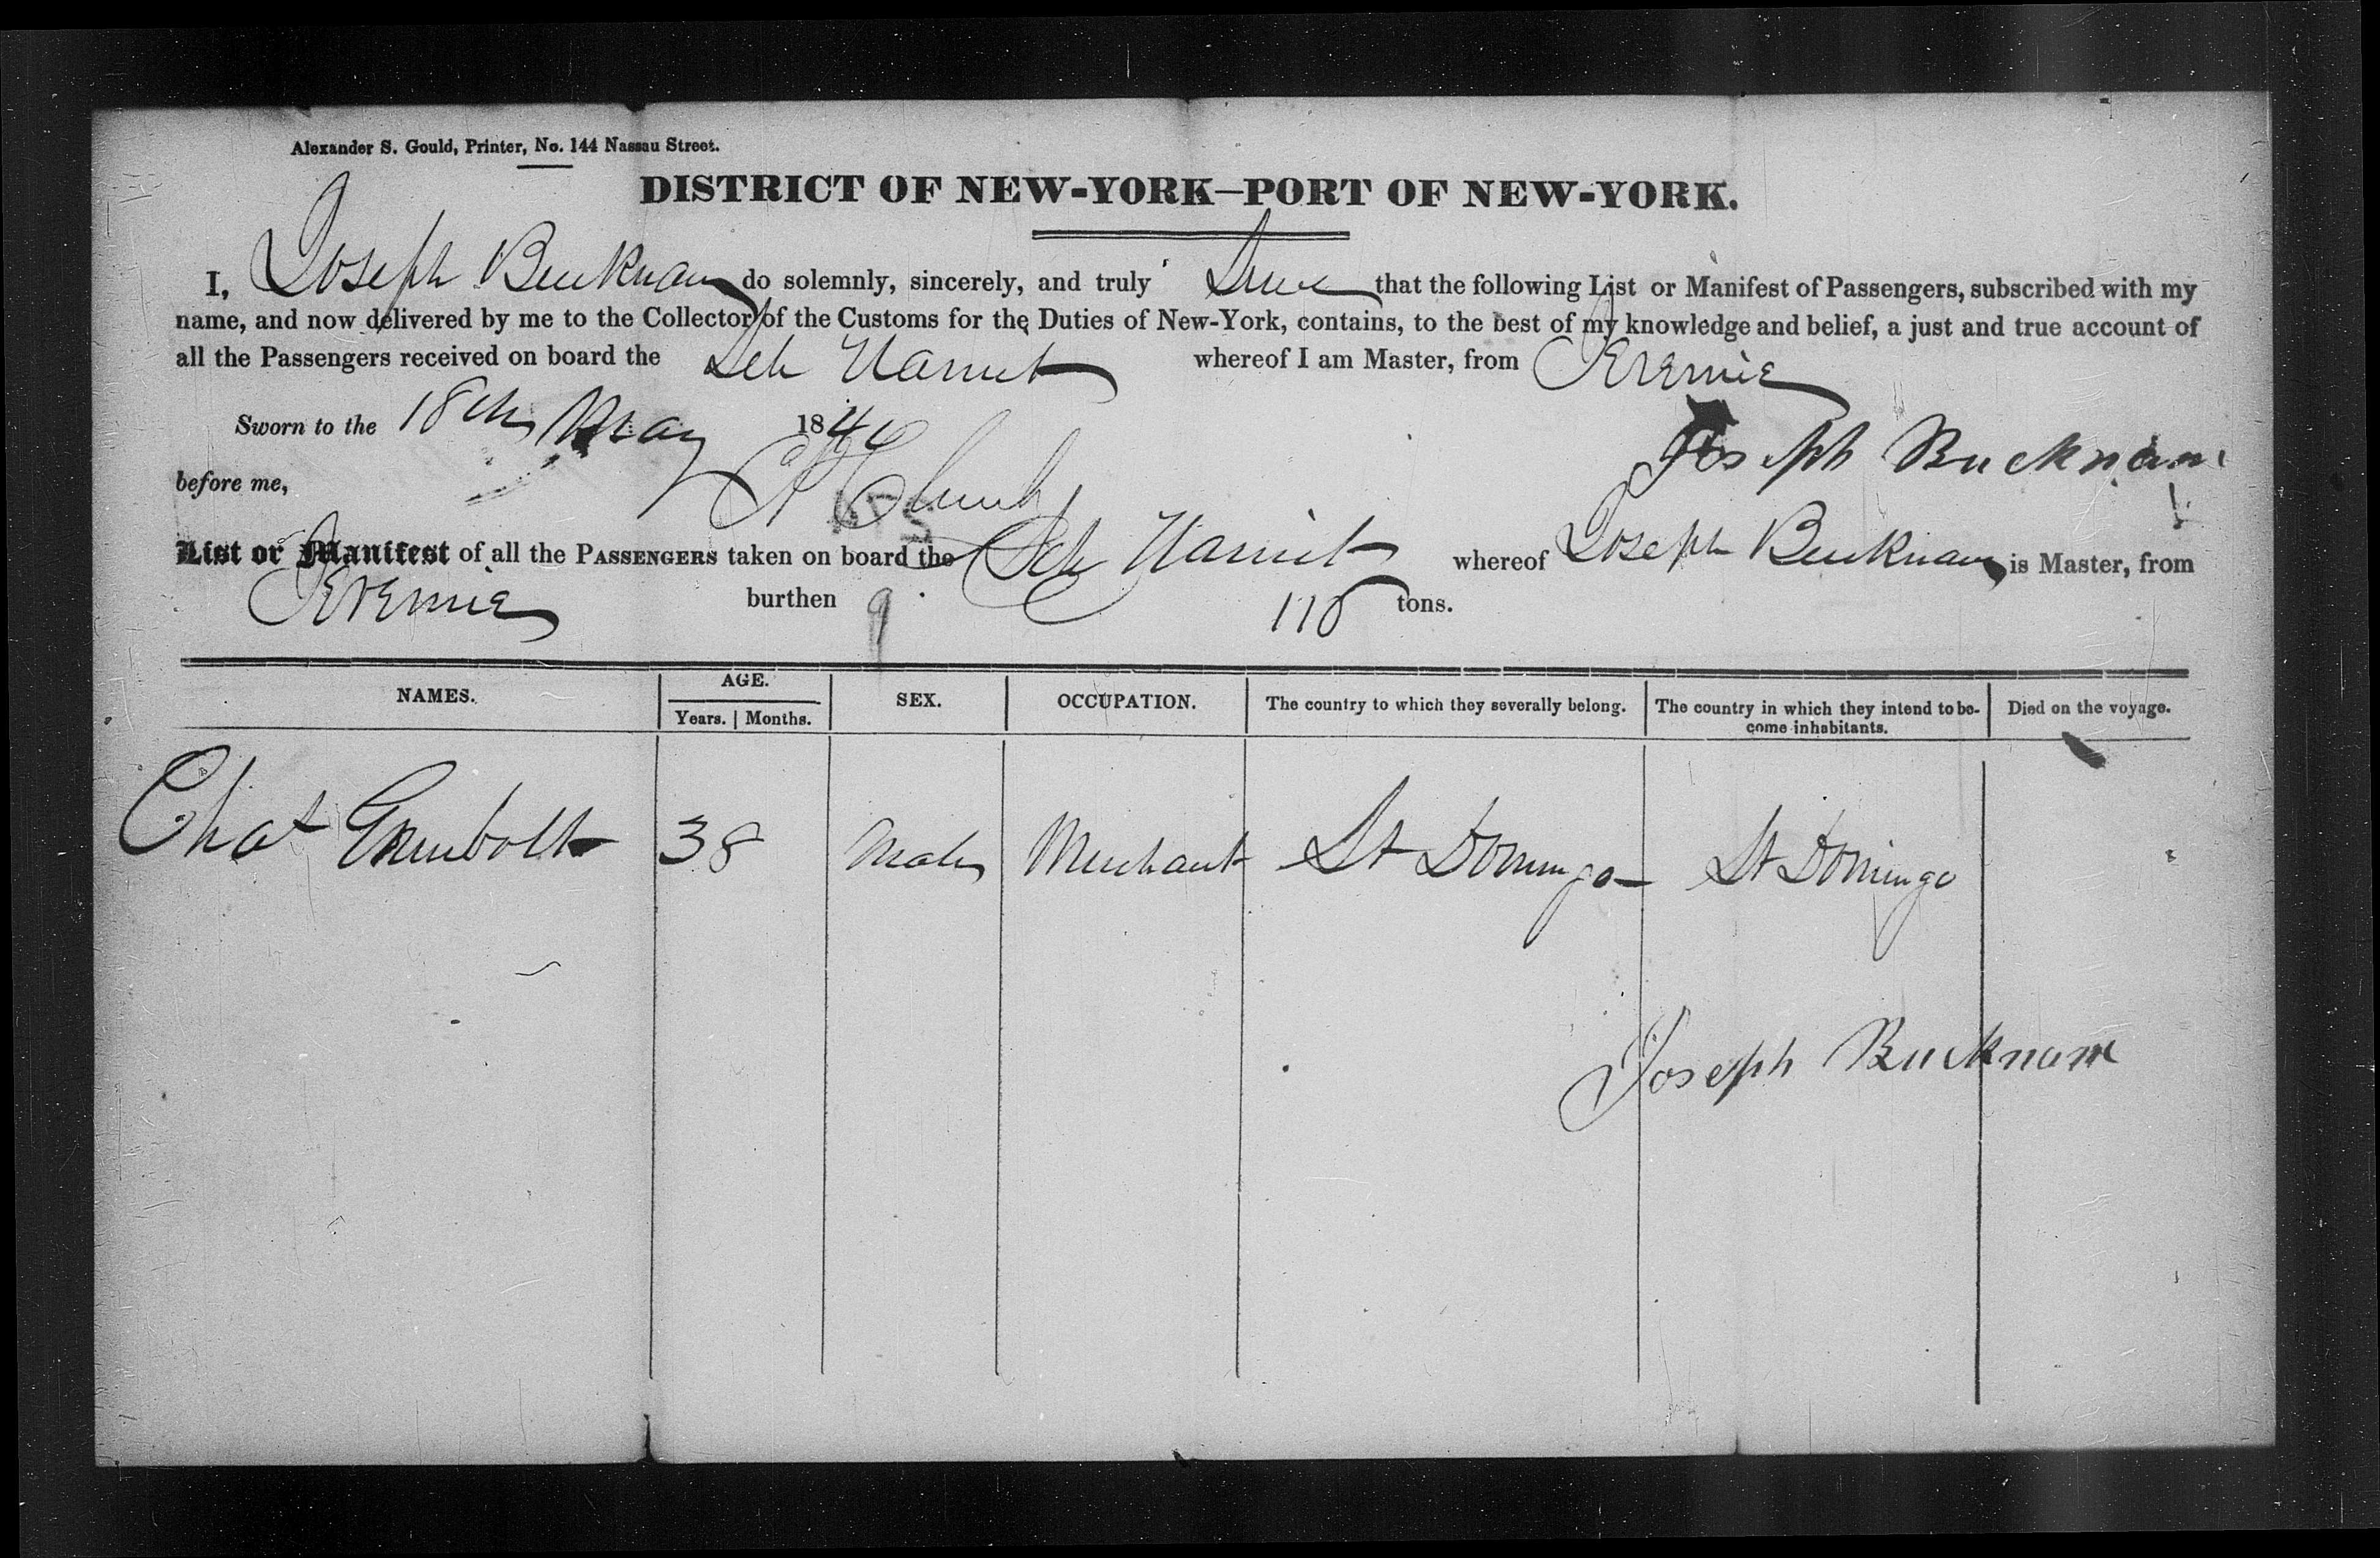 Alexander S. Gould, Printer, No. 144 Nassau Street.
DISTRICT OF NEW-YORK—PORT OF NEW-YORK.
I, Joseph Bucknam do solemnly, sincerely, and truly that the following List or Manifest of Passengers, subscribed with my
name, and now delivered by me to the Collector of the Customs for the Duties of New-York, contains, to the best of my knowledge and belief, a just and true account of
all the Passengers received on board the Sch Harriet whereof I am Master, from Jeremie
Sworn to the 18th May 184
Joseph Bucknam
before me,
List or Manifest of all the PASSENGERS taken on board the Sch Harriet whereof Joseph Bucknam is Master, from
Jeremie burthen 9 110 tons.
NAMES. AGE. Years. Months. SEX. OCCUPATION. The country to which they severally belong. The country in which they intend to become inhabitants. Died on the voyage.
38 Male Merchant St Domingo St Domingo
Joseph Bucknam